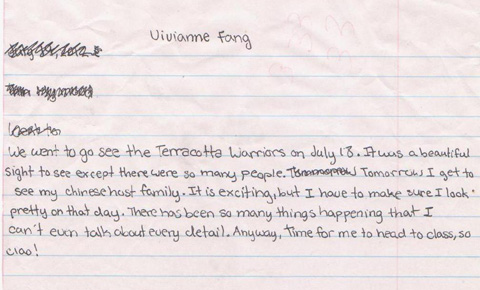 Vivianne Fang
We went to go see the Terracotta Warriors on July 18. It was a beautiful
sight to see except there were so many people. Tomorrow I get to
see my chinese host family. It is exciting, but I have to make sure I look
pretty on that day. There has been so many things happening that I
can't even talk about every detail. Anyway, time for me to head to class, so
ciao!